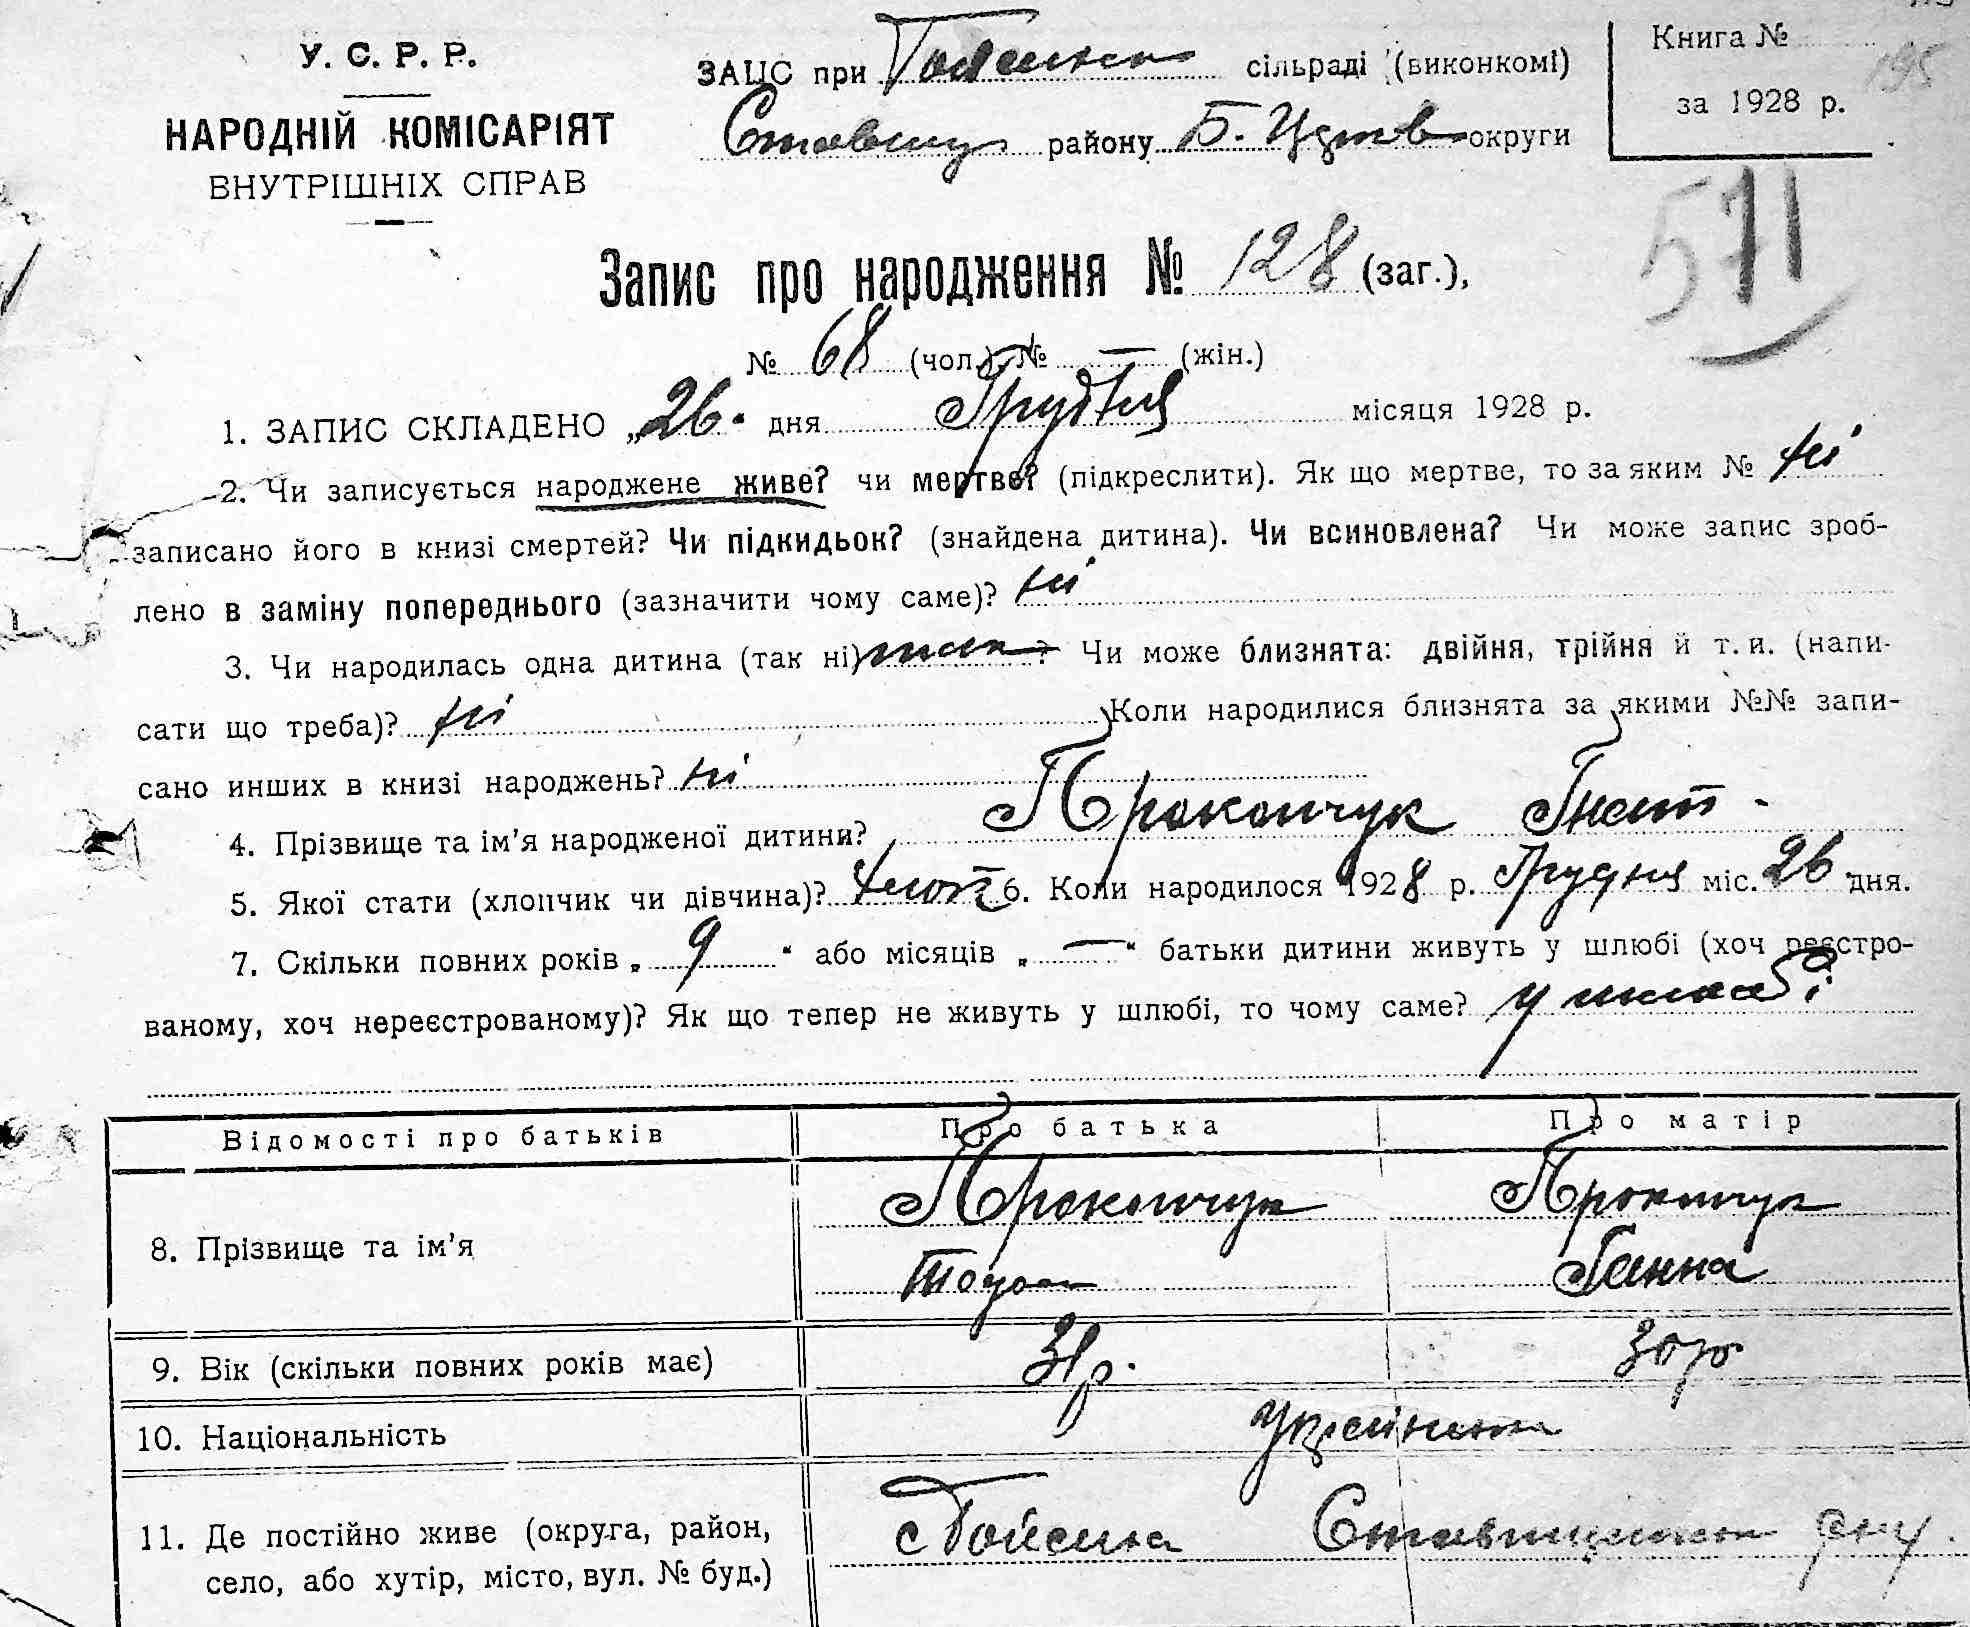 У. С. Р. Р.
НАРОДНІЙ КОМІСАРІЯТ
ВНУТРІШНІХ СПРАВ
ЗАЦС при сільраді (виконкомі)
району Б. Церкв округи
Книга №
195
за 1928 р.
571
Запис про народження № 128 (заг.),
№ 68 (чол.) № — (жін.)
1. ЗАПИС СКЛАДЕНО „26" дня Грудня місяця 1928 р.
2. Чи записується народжене живе? чи мертве? (підкреслити). Як що мертве, то за яким № ні
записано його в книзі смертей? Чи підкидьок? (знайдена дитина). Чи всиновлена? Чи може запис зроб-
лено в заміну попереднього (зазначити чому саме)? ні
3. Чи народилась одна дитина (так ні) так ? Чи може близнята: двійня, трійня й т. и. (напи-
сати що треба)? ні Коли народилися близнята за якими №№ запи-
сано инших в книзі народжень? ні
4. Прізвище та ім'я народженої дитини? Прокопчук Гнат -
5. Якої стати (хлопчик чи дівчина)? 6. Коли народилося 1928 р. Грудня міс. 26 дня.
7. Скільки повних років „ 9 " або місяців „ — " батьки дитини живуть у шлюбі (хоч реєстро-
ваному, хоч нереєстрованому)? Як що тепер не живуть у шлюбі, то чому саме? у шлюбі
Відомості про батьків Про батька Про матір
8. Прізвище та ім'я Прокопчук Прокопчук
Тодось Ганна
9. Вік (скільки повних років має) 31 р. 30 р.
10. Національність
11. Де постійно живе (округа, район,
село, або хутір, місто, вул. № буд.)